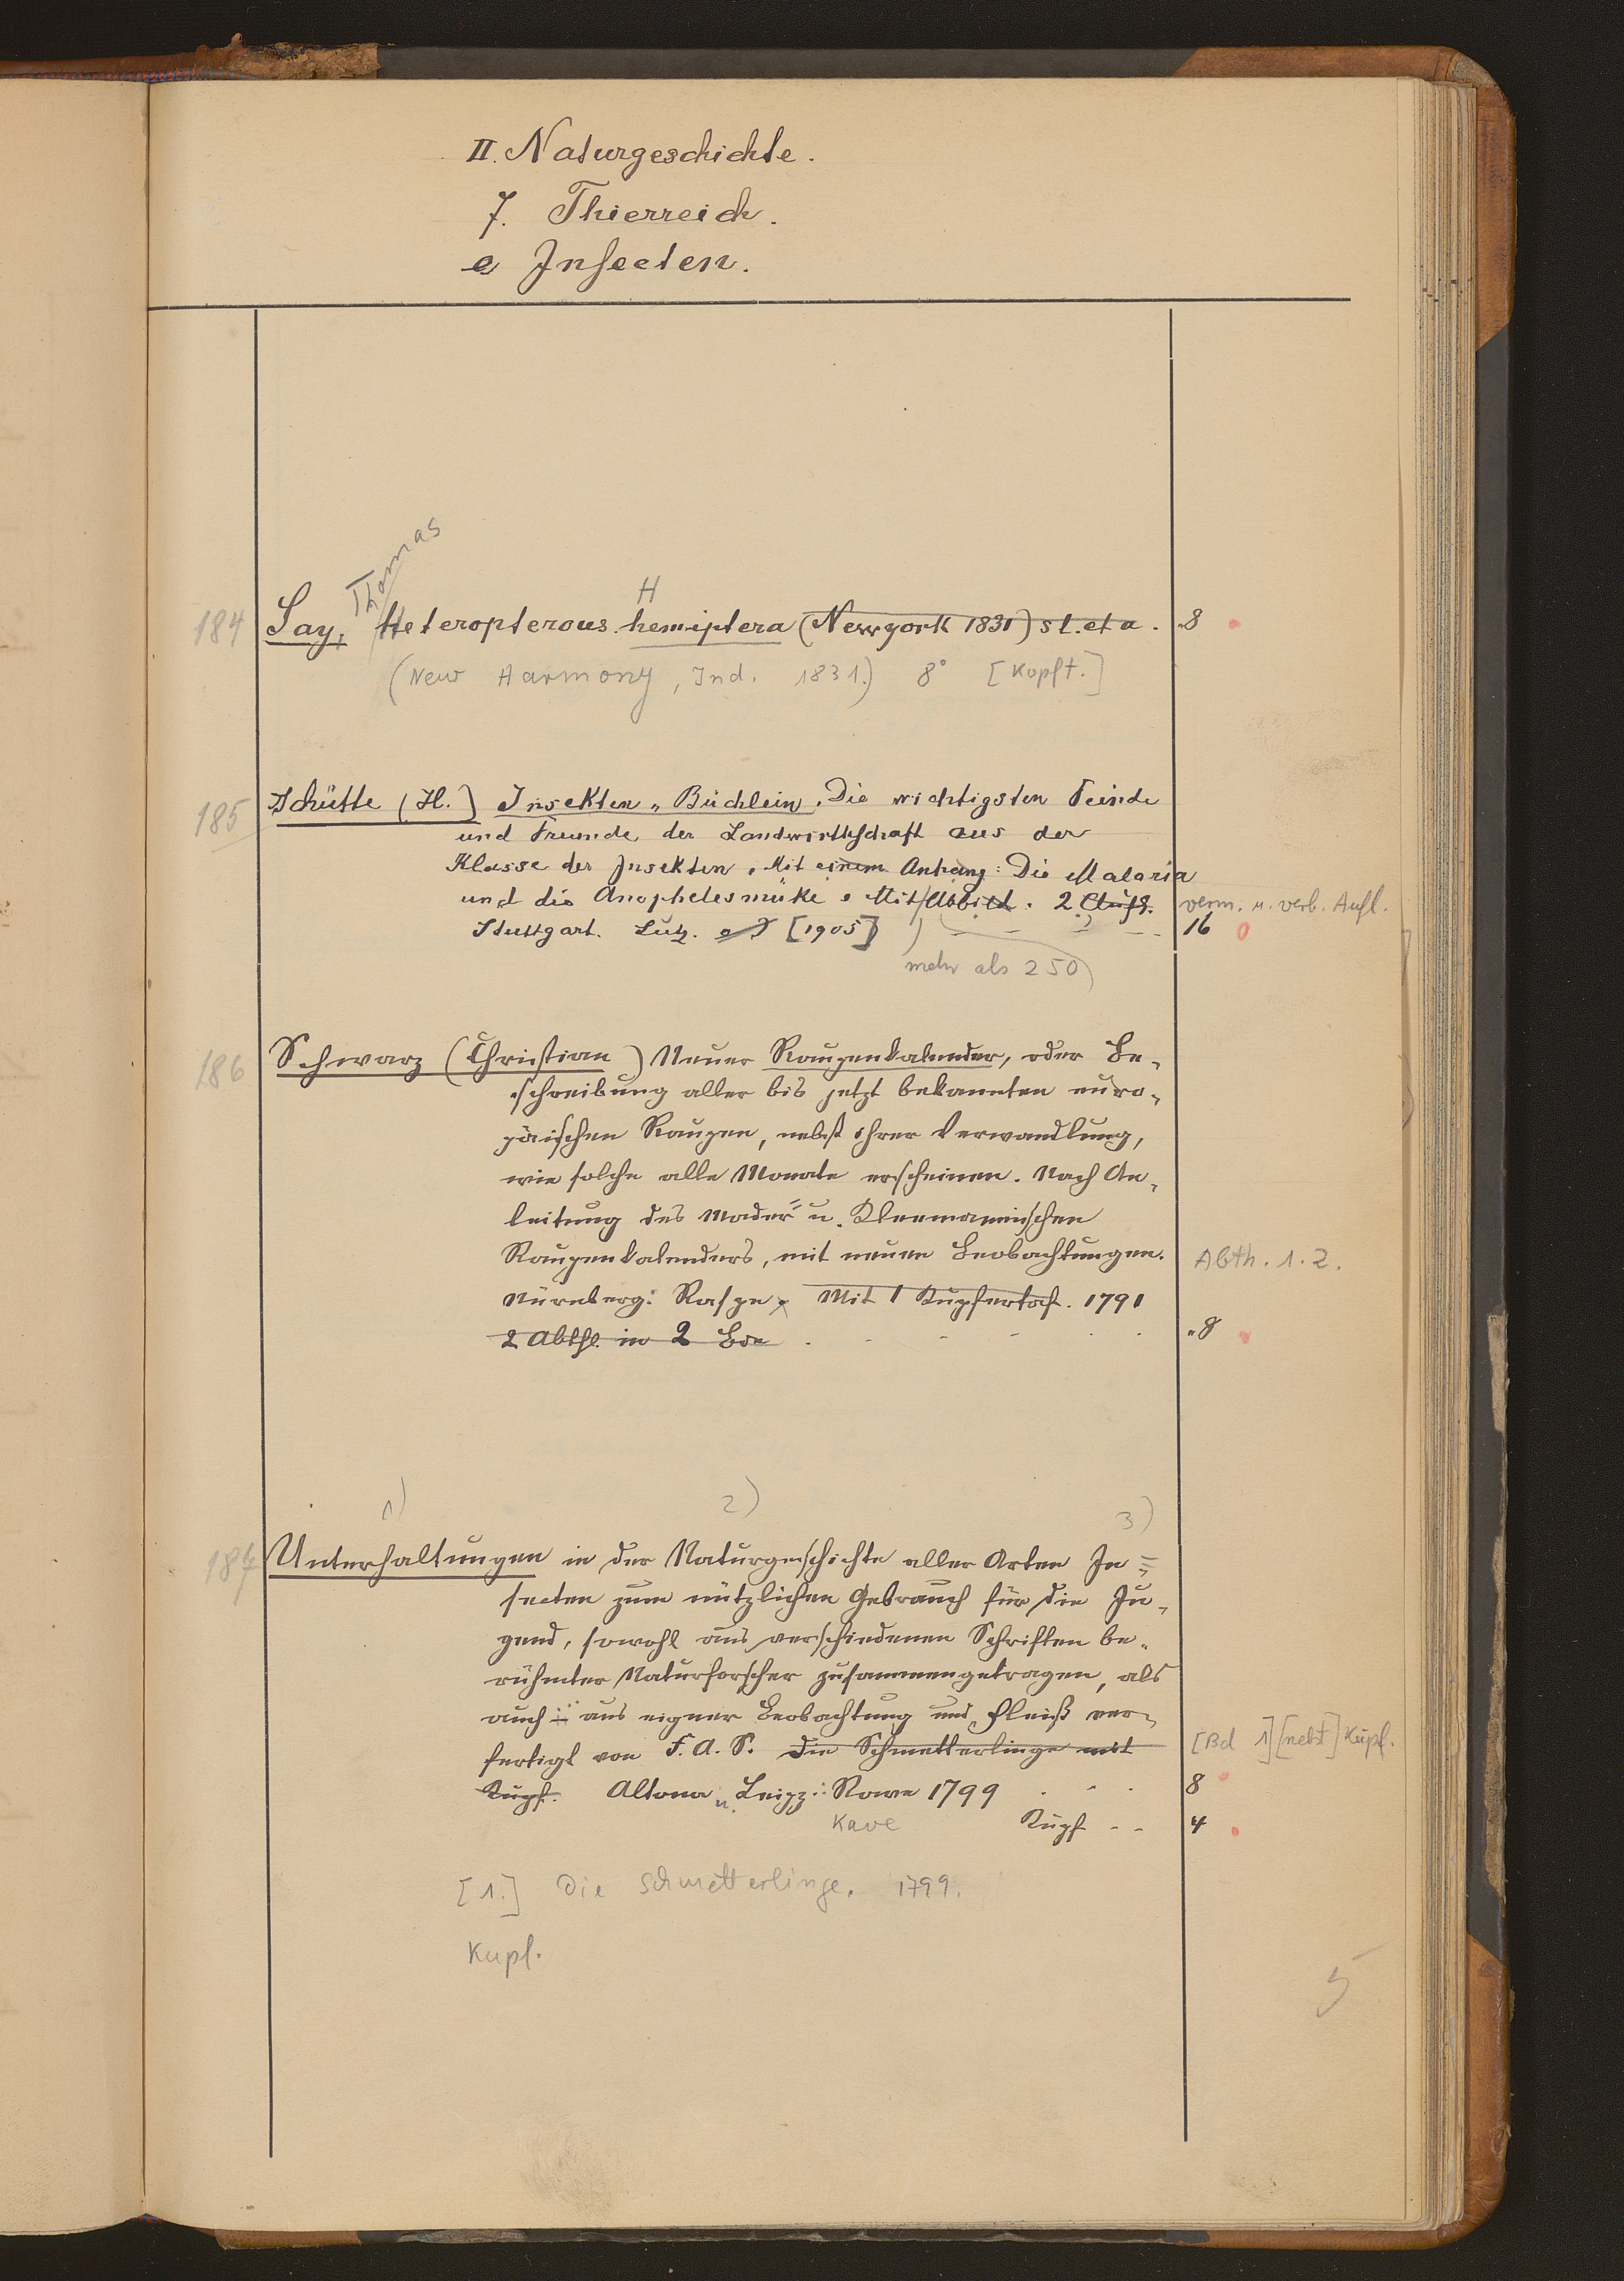 II. Naturgeschichte.
7. Thierreich.
e Insecten.
Thomas
H
184 Say, Heteropterous hemiptera (Newyork 1831) s t. et a. 8
(New Harmony, Ind. 1831.) 8° [Kopft.]
185 Schütte (H.) Insekten-Büchlein. Die wichtigsten Feinde
und Freunde der Landwirthschaft aus der
Klasse der Insekten. Mit einem Anhang: Die Malaria
und die Anophelesmüke. Mit Abbild. 2 Aufl. verm. u. verb. Aufl.
Stuttgart. Lutz. [1905] 16
mehr als 250
186 Schwarz (Christian) Neuer Raupenkalender, oder Be-
schreibung aller bis jetzt bekannten euro-
päischen Raupen, nebst ihrer Verwandlung,
wie solche alle Monate erscheinen. Nach An-
leitung des Mader- u. Kleemannischen
Raupenkalenders, mit neuen Beobachtungen. Abth. 1. 2.
Nürnberg: Raspe. Mit 1 Kupfertaf. 1791
2 Abthl. in 2 Bde 8
1) 2) 3)
187 Unterhaltungen in der Naturgeschichte aller Arten In-
secten zum nützlichen Gebrauch für die Ju-
gend, sowohl aus verschiedenen Schriften be-
rühmter Naturforscher zusammengetragen, als
auch aus eigner Beobachtung und Fleiß ver-
fertigt von F. A. S. Die Schmetterlinge mit [Bd 1] [nebst] Kupf.
Kupf. Altona u. Leipz.: Rowe 1799 8
Kave Kupf - - 4
[1.] Die Schmetterlinge. 1799.
Kupf.
5